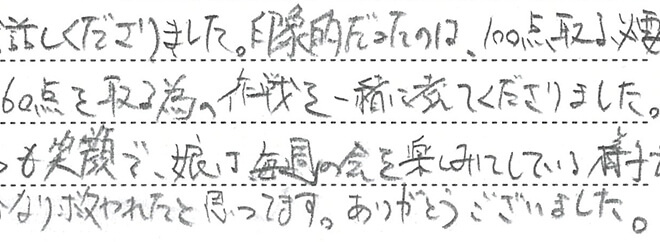 話しくださりました。印象的だったのは、100点取る必要
60点を取る為の作戦を一緒に考えてくださりました。
つも笑顔で、娘は毎週の会を楽しみにしている様子
なり救われたと思ってます。ありがとうございました。